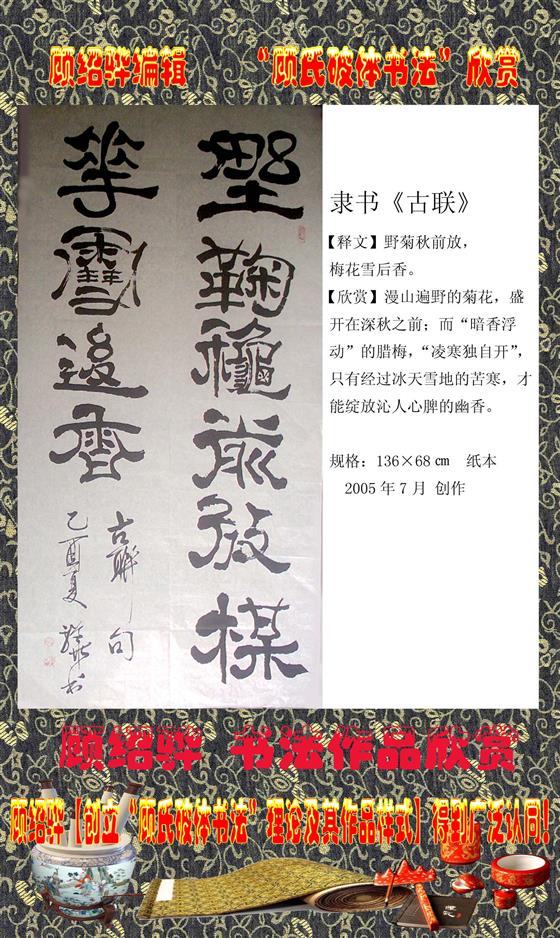 顾绍骅编辑 “顾氏破体书法”欣赏
野鞠龝前放楳
華雪後香
古聯句
乙酉夏 驊书
隶书《古联》
【释文】野菊秋前放，
梅花雪后香。
【欣赏】漫山遍野的菊花，盛
开在深秋之前；而“暗香浮
动”的腊梅，“凌寒独自开”，
只有经过冰天雪地的苦寒，才
能绽放沁人心脾的幽香。
规格：136×68㎝ 纸本
2005年7月 创作
顾绍骅 书法作品欣赏
顾绍骅【创立“顾氏破体书法”理论及其作品样式】得到广泛认同！